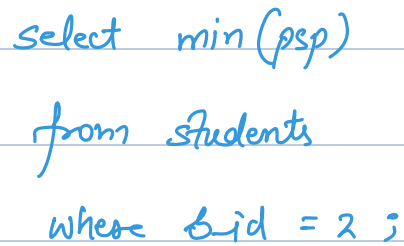 select min(psp)
from students
where b_id = 2 ;